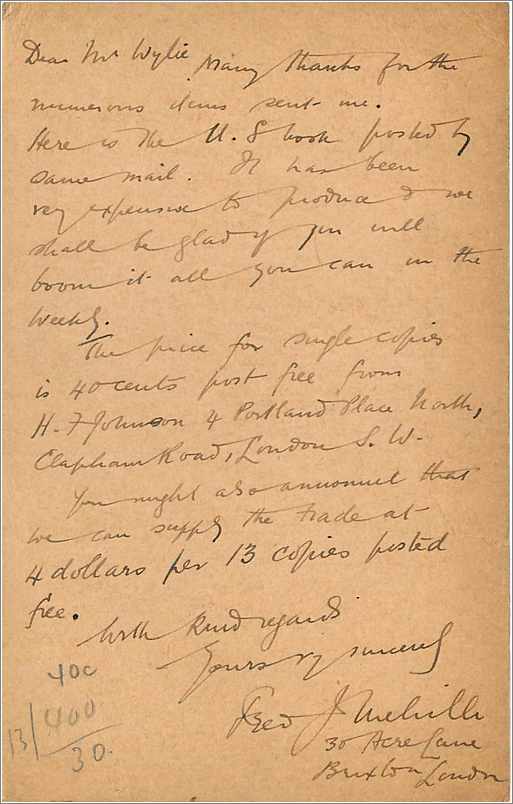 Dear Mr Wylie Many thanks for the
numerous items sent me.
Here is the U.S book posted by
same mail. It has been
very expensive to produce & we
shall be glad if you will
boom it all you can in the
Weekly.
The price for single copies
is 40 cents post free from
H. F Johnson 4 Portland Place North,
Clapham Road, London S. W.
You might also announce that
we can supply the trade at
4 dollars per 13 copies posted
free.
With kind regards
Yours vy sincerely
Fred J Melville
30 Acre Lane
Brixton London
40c
13/400
30.